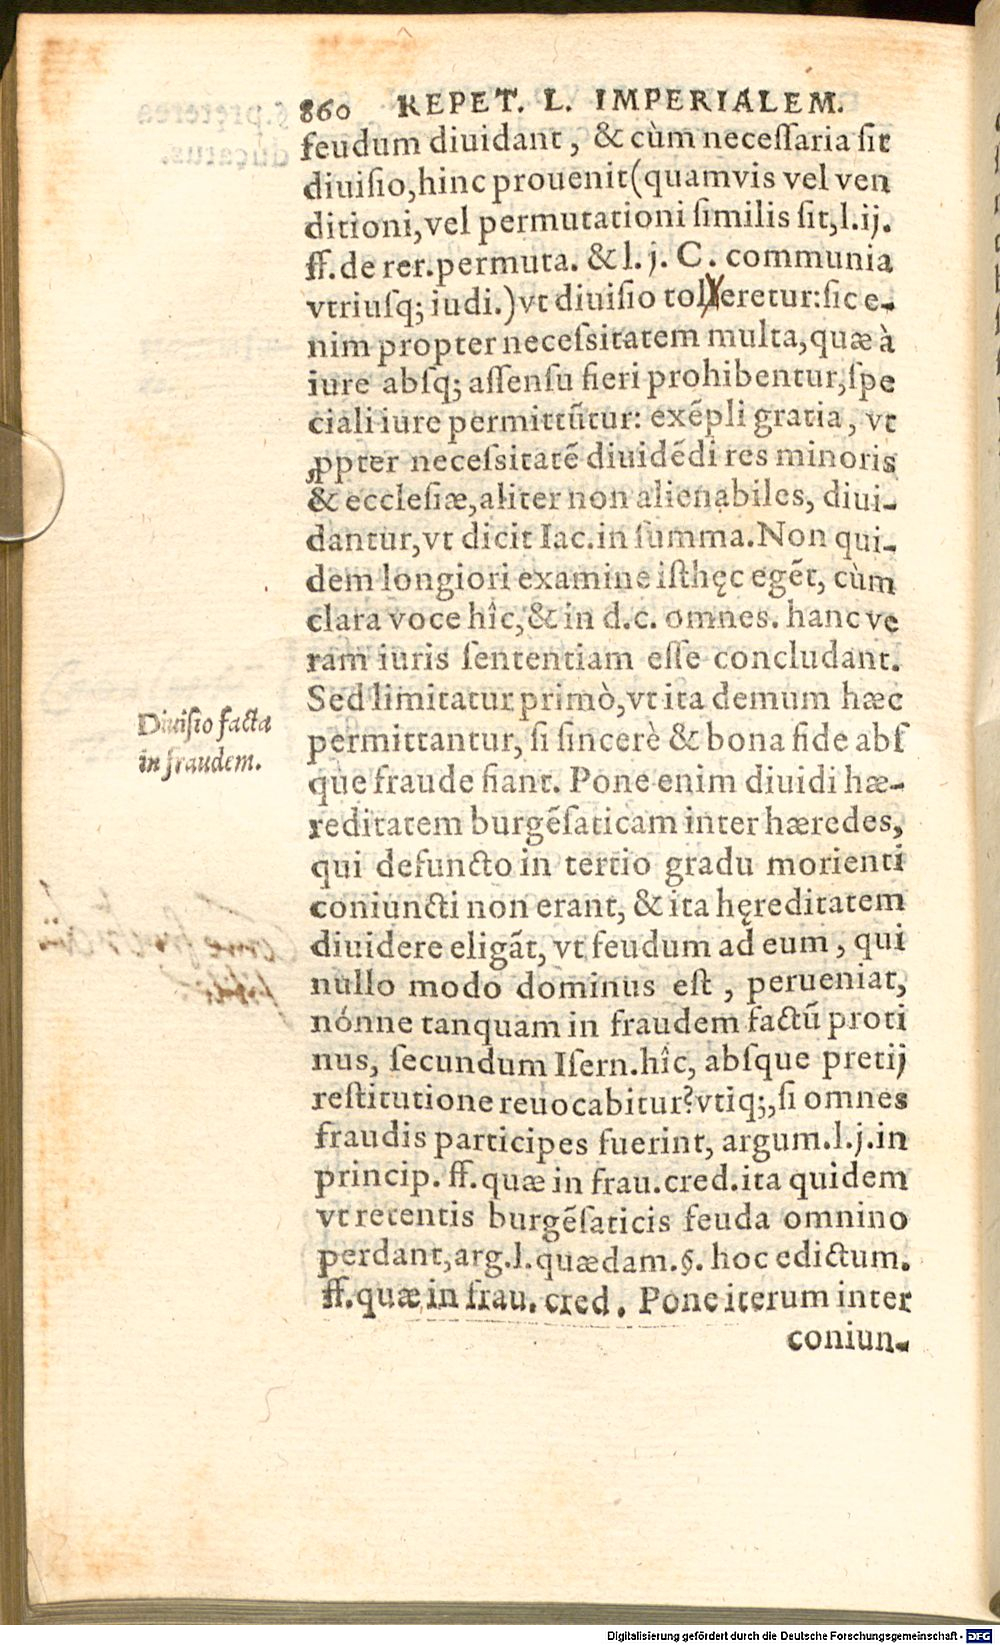 860 REPET. L. IMPERIALEM.
feudum diuidant, & cùm neceſſaria ſit
diuiſio, hinc prouenit (quamvis vel ven
ditioni, vel permutationi ſimilis ſit, l. ij.
ff. de rer. permuta. & l. j. C. communia
vtriuſq; iudi.) vt diuiſio tolleretur: ſic e-
nim propter neceſsitatem multa, quæ à
iure abſq; aſſenſu fieri prohibentur, ſpe
ciali iure permittũtur: exẽpli gratia, vt
ꝓpter neceſsitatẽ diuidẽdi res minoris
& eccleſiæ, aliter non alienabiles, diui-
dantur, vt dicit Iac. in ſumma. Non qui-
dem longiori examine iſthęc egẽt, cùm
clara voce hîc, & in d. c. omnes. hanc ve
ram iuris ſententiam eſſe concludant.
Sed limitatur primò, vt ita demum hæc
Diuiſio facta
in fraudem.
permittantur, ſi ſincerè & bona fide abſ
que fraude fiant. Pone enim diuidi hæ-
reditatem burgẽſaticam inter hæredes,
qui defuncto in tertio gradu morienti
coniuncti non erant, & ita hęreditatem
diuidere eligãt, vt feudum ad eum, qui
nullo modo dominus eſt, perueniat,
nónne tanquam in fraudem factũ proti
nus, ſecundum Iſern. hîc, abſque pretij
reſtitutione reuocabitur? vtiq;, ſi omnes
fraudis participes fuerint, argum. l. j. in
princip. ff. quæ in frau. cred. ita quidem
vt retentis burgẽſaticis feuda omnino
perdant, arg. l. quædam. §. hoc edictum.
ff. quæ in frau. cred. Pone iterum inter
coniun-
Digitalisierung gefördert durch die Deutsche Forschungsgemeinschaft - DFG